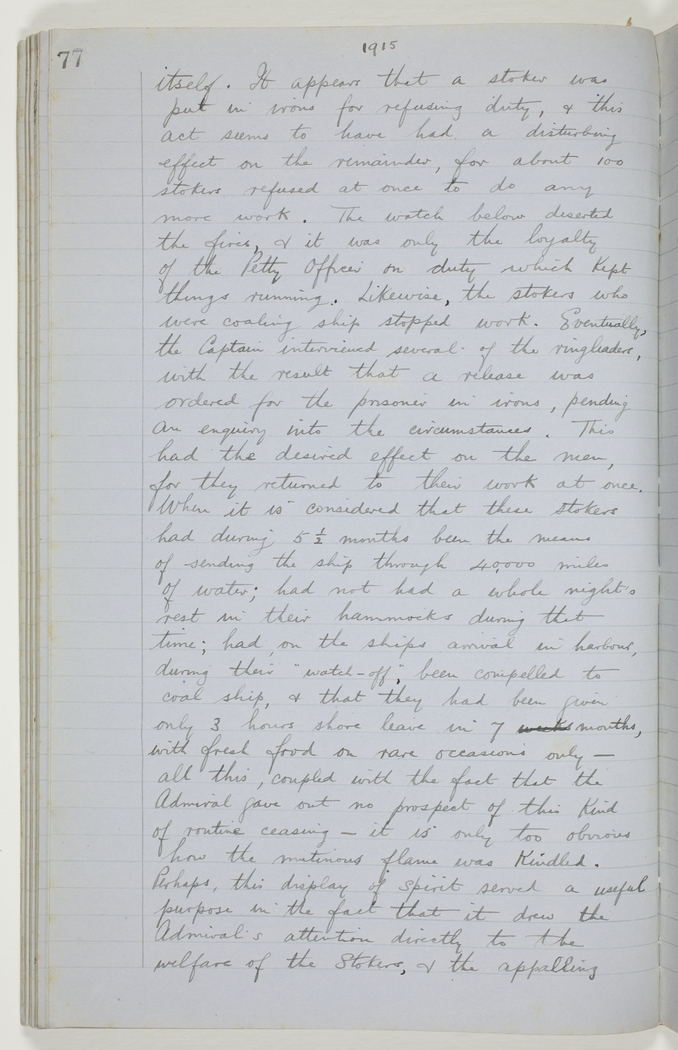 77
1915
itself. It appears that a stoker was
put in irons for refusing duty, & this
act seems to have had a disturbing
effect on the remainder, for about 100
stokers refused at once to do any
more work. The watch below deserted
the fires, & it was only the loyalty
of the Petty Officer on duty which kept
things running. Likewise, the stokers who
were coaling ship stopped work. Eventually,
the Captain interviewed several of the ringleaders,
with the result that a release was
ordered for the prisoner in irons, pending
an enquiry into the circumstances. This
had the desired effect on the men,
for they returned to their work at once.
When it is considered that these stokers
had during 5½ months been the means
of sending the ship through 40,000 miles
of water; had not had a whole night's
rest in their hammocks during that
time; had, on the ships arrival in harbour,
during their "watch-off", been compelled to
coal ship, & that they had been given
only 3 hours shore leave in 7 weeks months,
with fresh food on rare occasions only —
all this, coupled with the fact that the
Admiral gave out no prospect of this kind
of routine ceasing — it is only too obvious
how the mutinous flame was kindled.
Perhaps, this display of spirit served a useful
purpose in the fact that it drew the
Admiral's attention directly to the
welfare of the Stokers, & the appalling